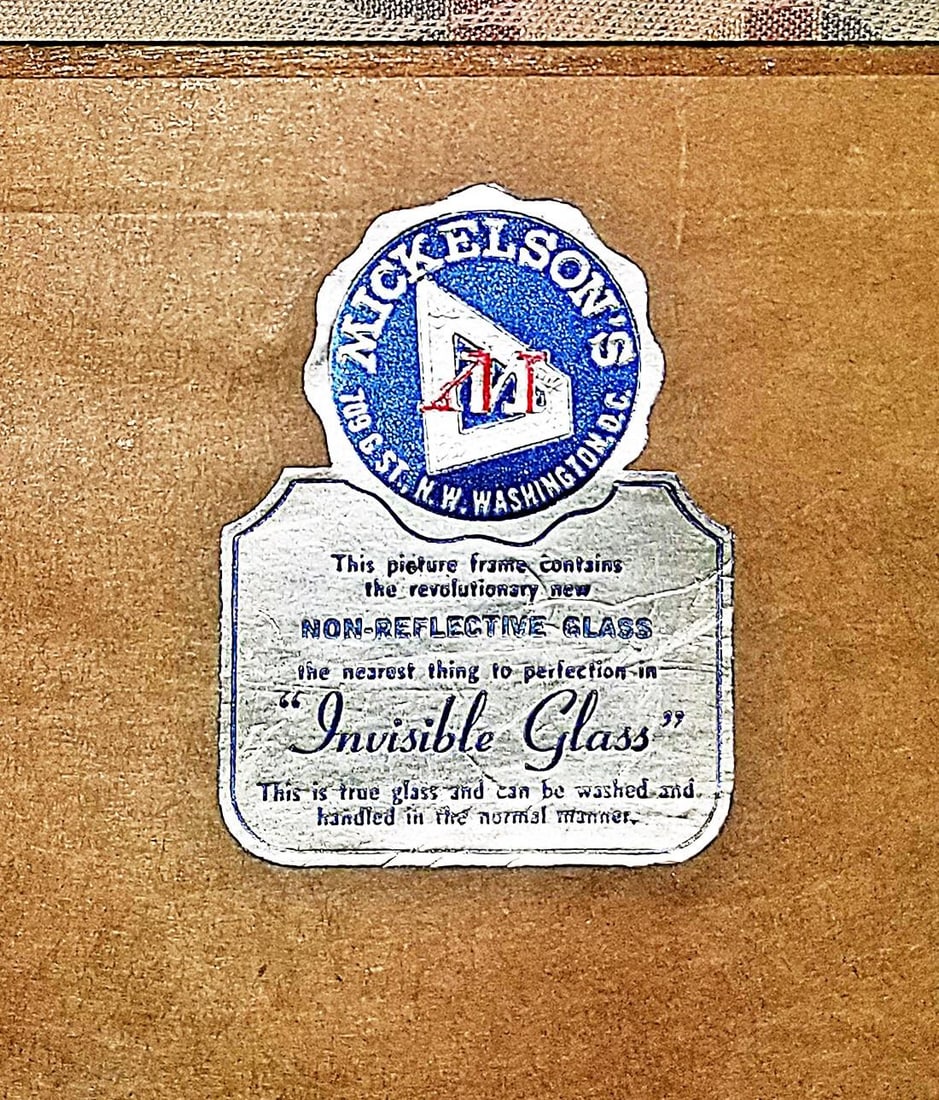 MICKELSON'S
M
709 G ST., N.W. WASHINGTON, D.C.
This picture frame contains
the revolutionary new
NON-REFLECTIVE GLASS
the nearest thing to perfection in
"Invisible Glass"
This is true glass and can be washed and
handled in the normal manner.